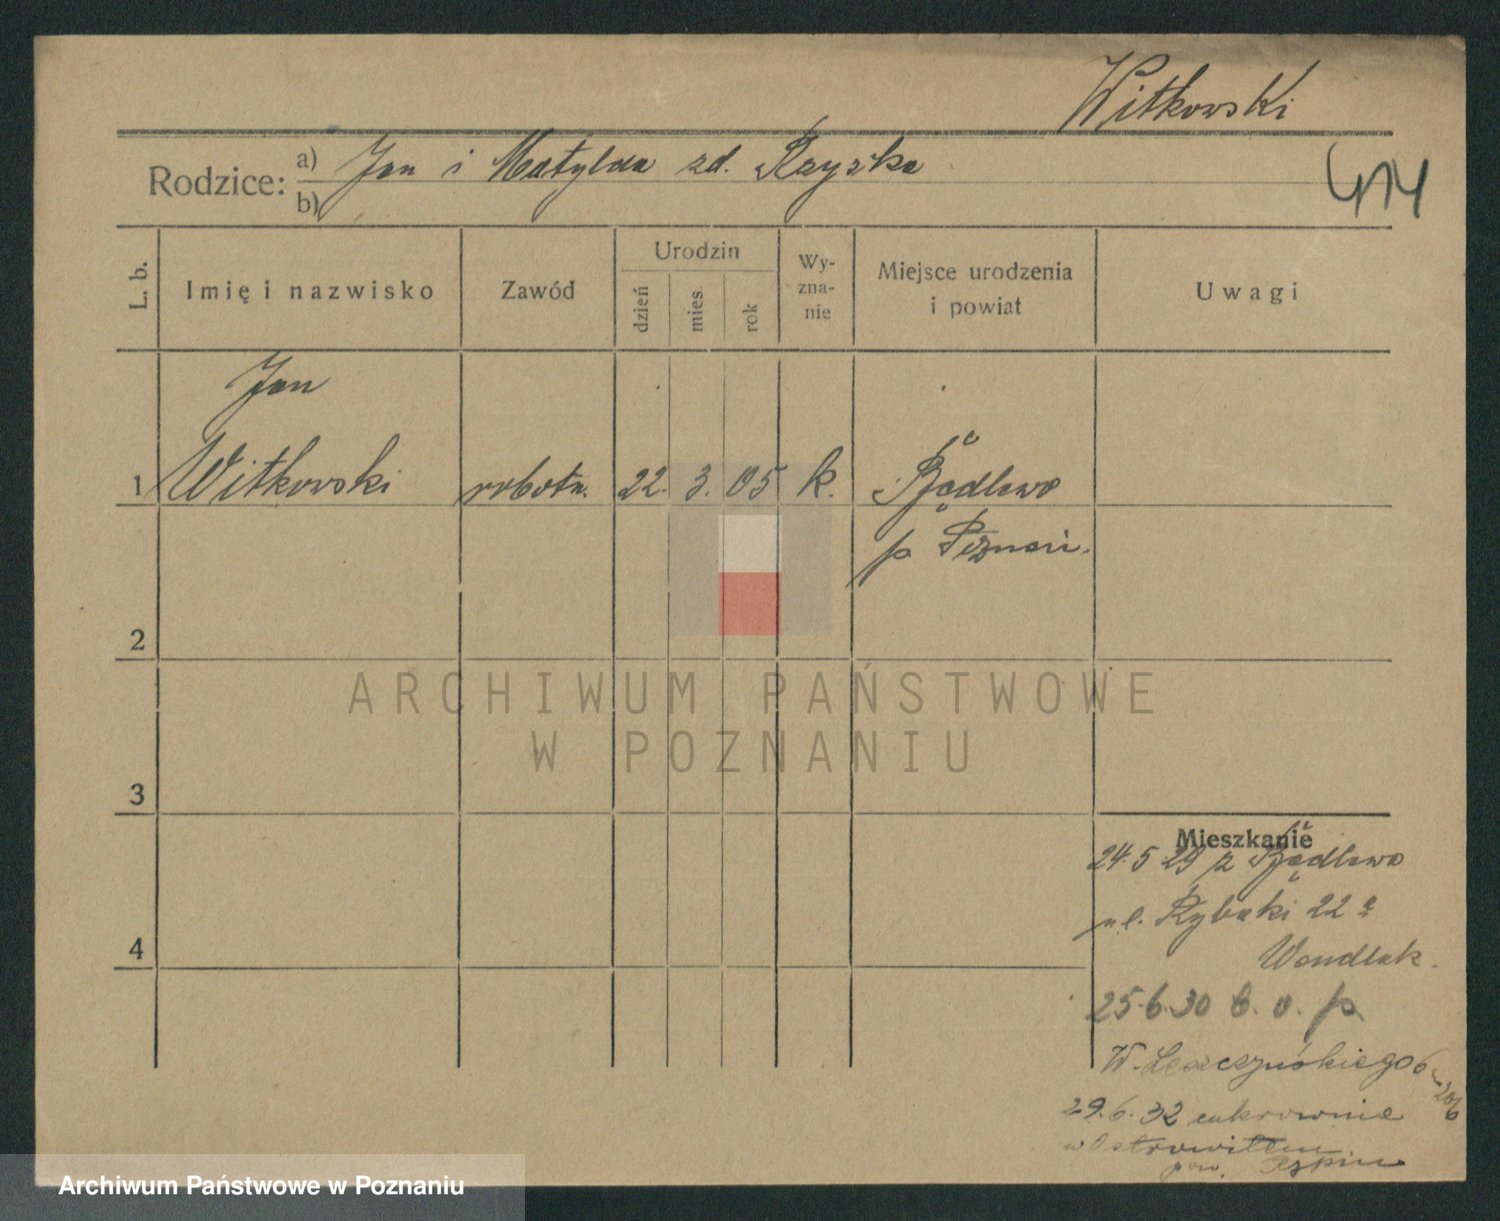 Witkowski
414
Rodzice: a) Jan i Matylda zd. Rzyska
b)
L. b.
Imię i nazwisko
Zawód
Urodzin
dzień
mies
rok
Wy-
zna-
nie
Miejsce urodzenia
i powiat
Uwagi
Jan
1 Witkowski robotn. 22. 3. 05 k. Bądlewo
p Poznań.
2
ARCHIWUM PAŃSTWOWE
W POZNANIU
3
Mieszkanie
24.5 29 z Bądlewo
ul. Rybaki 22 a
Wandlak.
25.6.30 b. o. p
W. Leszczyńskiego 6
29.6.32 cukrownia
w Ostrowitem
pow.
4
Archiwum Państwowe w Poznaniu